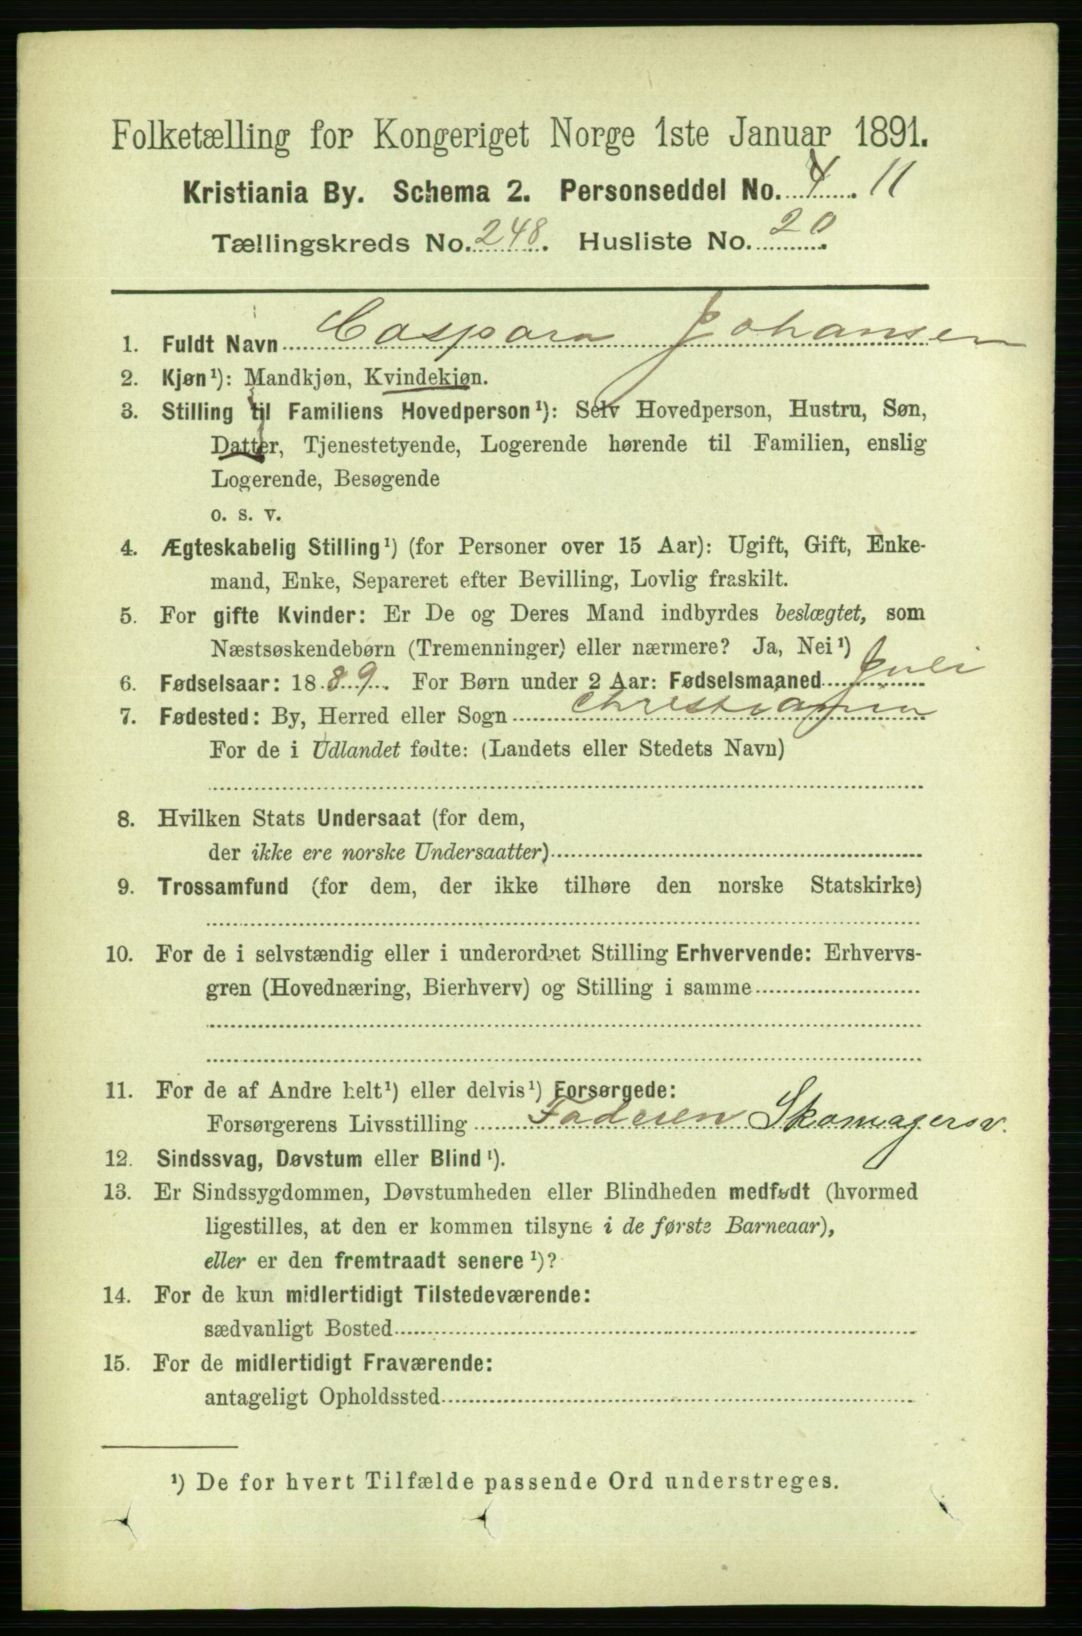 Folketælling for Kongeriget Norge 1ste Januar 1891.
Kristiania By. Schema 2. Personseddel No. 4. 11
Tællingskreds No. 248. Husliste No. 20.
1. Fuldt Navn Caspara Johansen
2. Kjøn¹): Mandkjøn, Kvindekjøn.
3. Stilling til Familiens Hovedperson¹): Selv Hovedperson, Hustru, Søn,
Datter, Tjenestetyende, Logerende hørende til Familien, enslig
Logerende, Besøgende
o. s. v.
4. Ægteskabelig Stilling¹) (for Personer over 15 Aar): Ugift, Gift, Enke-
mand, Enke, Separeret efter Bevilling, Lovlig fraskilt.
5. For gifte Kvinder: Er De og Deres Mand indbyrdes beslægtet, som
Næstsøskendebørn (Tremenninger) eller nærmere? Ja, Nei¹)
6. Fødselsaar: 1889. For Børn under 2 Aar: Fødselsmaaned Juli
7. Fødested: By, Herred eller Sogn Christiania
For de i Udlandet fødte: (Landets eller Stedets Navn)
8. Hvilken Stats Undersaat (for dem,
der ikke ere norske Undersaatter)
9. Trossamfund (for dem, der ikke tilhøre den norske Statskirke)
10. For de i selvstændig eller i underordnet Stilling Erhvervende: Erhvervs-
gren (Hovednæring, Bierhverv) og Stilling i samme
11. For de af Andre helt¹) eller delvis¹) Forsørgede:
Forsørgerens Livsstilling Faderen Skomagersv.
12. Sindssvag, Døvstum eller Blind¹).
13. Er Sindssygdommen, Døvstumheden eller Blindheden medfødt (hvormed
ligestilles, at den er kommen tilsyne i de første Barneaar),
eller er den fremtraadt senere¹)?
14. For de kun midlertidigt Tilstedeværende:
sædvanligt Bosted
15. For de midlertidigt Fraværende:
antageligt Opholdssted
¹) De for hvert Tilfælde passende Ord understreges.